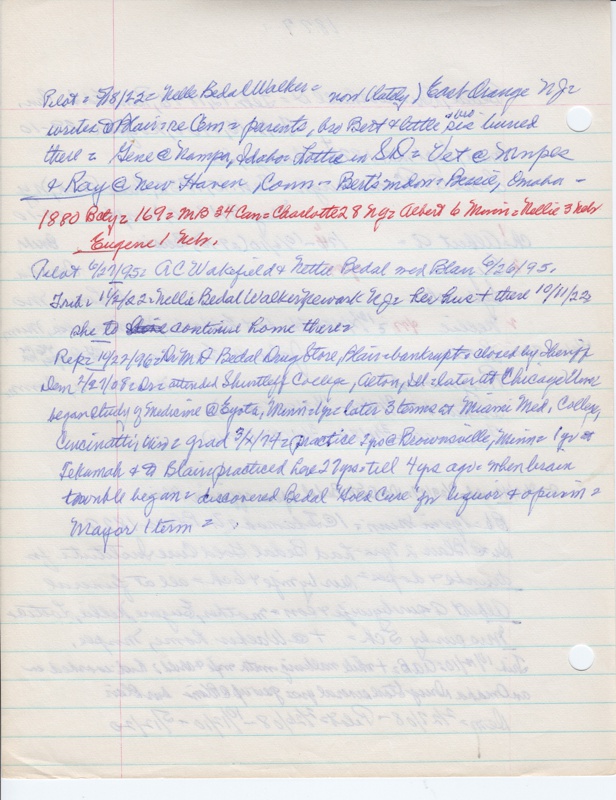 Pilot = 7/8/22 = Nelle Bedal Walker = now (lately) East Orange NJ =
writes @ Blair = re Cem = parents, bro Bert & little sis & bro buried
there = Gene @ Nampa, Idaho = Lottie in SD = Vet @ Nmpa
& Ray @ New Haven, Conn = Bert's wdow = Bessie, Omaha =
1880 Bcty = 169 = MD 34 Can = Charlotte 28 Ny = Albert 6 Minn = Nellie 3 Nebr
Eugene 1 Nebr.
Pilot 6/27/95 = A C Wakefield & Nettie Bedal wed Blair 6/26/95.
Trib = 11/2/22 = Nellie Bedal Walker Newark NJ = her hus + there 10/11/22
she to continue home there =
Rep = 10/22/96 = Dr MD Bedal Drug Store, Blair = bankrupt = closed by Sheriff
Dem 2/27/08 = Dr = attended Shurtleff College, Alton, Ill = later at Chicago Univ
began study of Medicine @ Eyota, Minn = 1 yr = later 3 terms at Miami Med. College,
Cincinatti, Ohio = grad 3/1/74 = practice 2 yrs @ Brownsville, Minn = 1 yr at
Tekamah & @ Blair, practiced here 27 yrs = till 4 yrs ago = when brain
trouble began = discovered Bedal "Gold Cure" for liquor & opium =
Mayor 1 term =